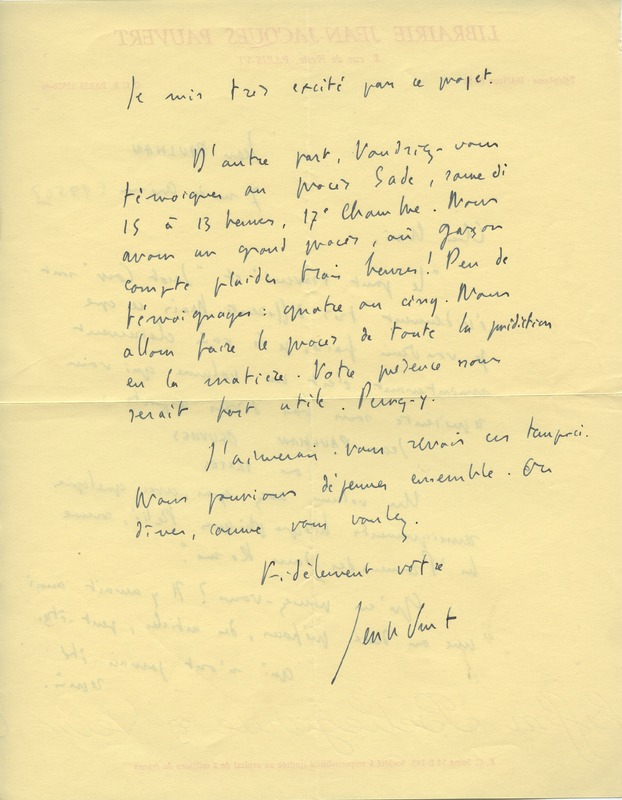 Je suis très excité par ce projet.
D'autre part, Voudriez-vous
témoigner au procès Sade, samedi
15 à 13 heures, 17e Chambre. Nous
avons un grand procès, où garçon
compte plaider trois heures! Peu de
témoignages : quatre ou cinq. Nous
allons faire le procès de toute la juridiction
en la matière. Votre présence nous
serait fort utile. Pensez-y.
J'aimerais vous revoir ces temps-ci.
Nous pourrions déjeuner ensemble. Ou
dîner, comme vous voulez.
Fidèlement votre
LIBRAIRIE JEAN-JACQUES PAUVERT